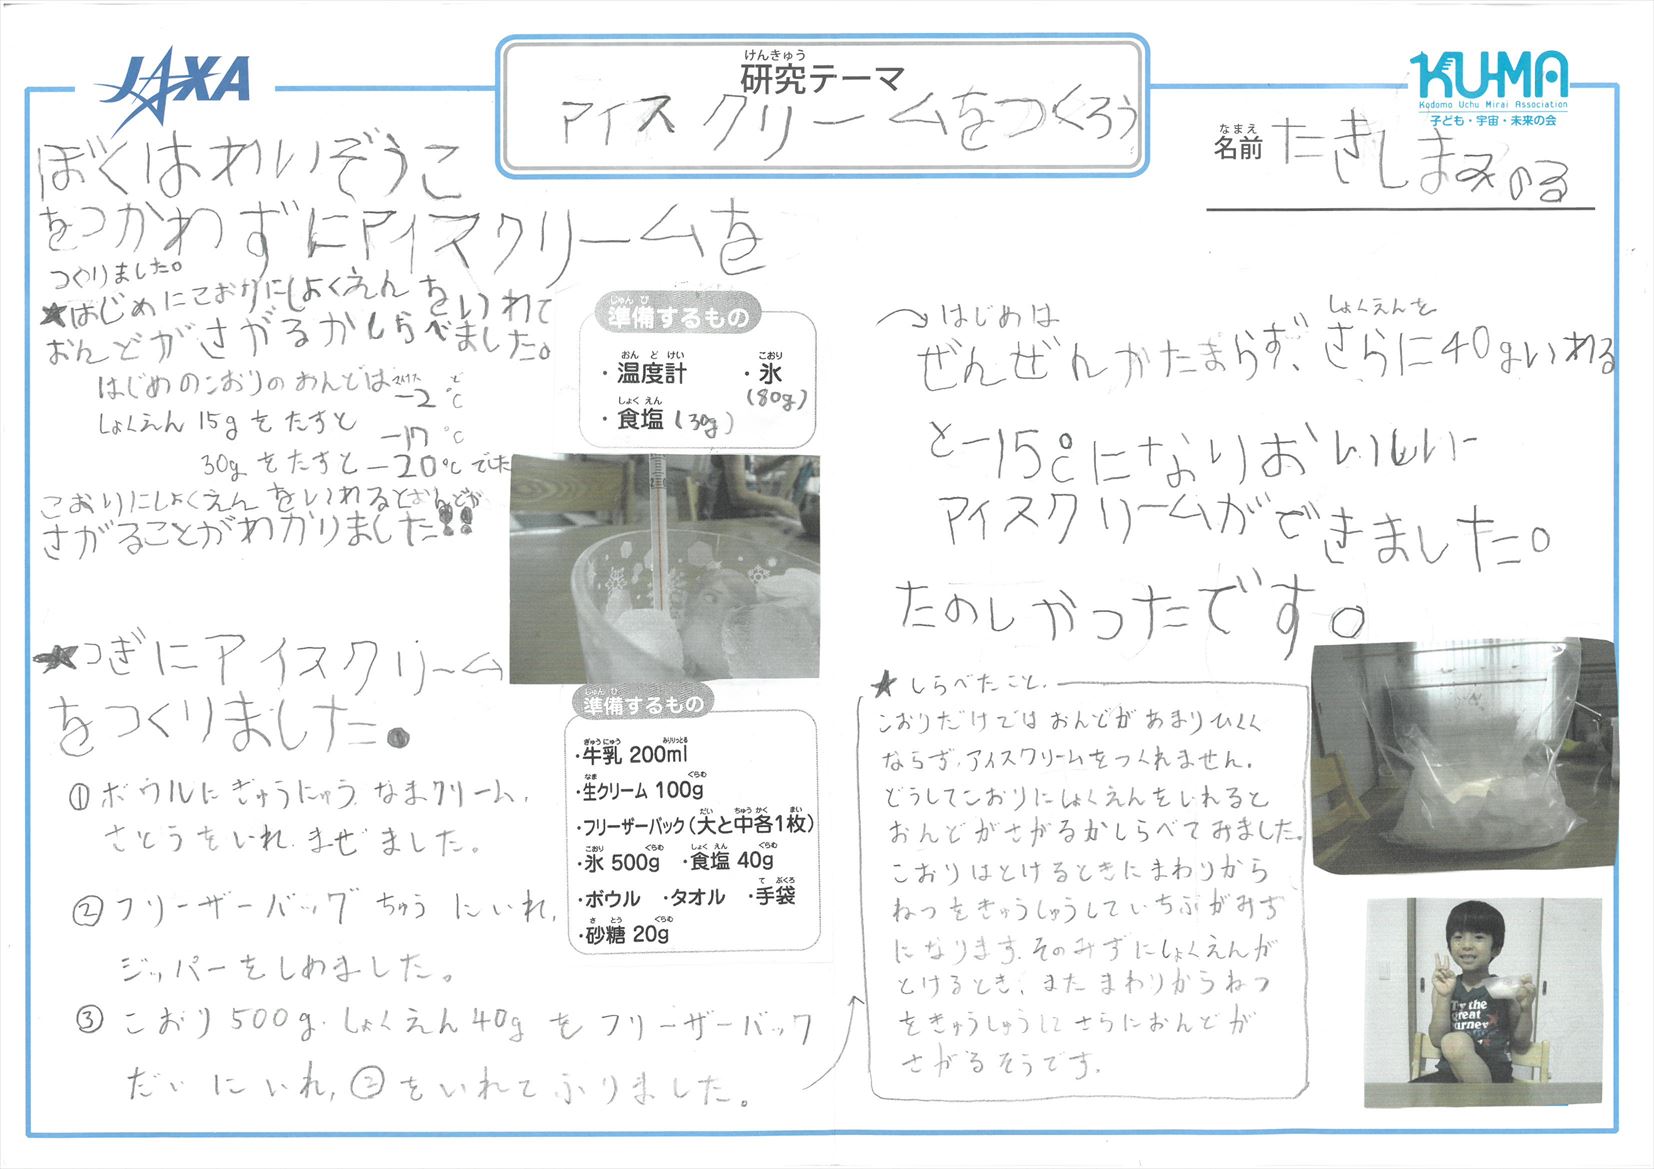 JAXA
けんきゅう
研究テーマ
アイスクリームをつくろう
KU-MA
Kodomo Uchu Mirai Association
子ども・宇宙・未来の会
なまえ
名前 たきしまみのる
ぼくはれいぞうこ
をつかわずにアイスクリームを
つくりました。
★はじめにこおりにしょくえんをいれて
おんどがさがるかしらべました。
はじめのこおりのおんどは -2℃
しょくえん15gをたすと -17℃
30gをたすと -20℃でした
こおりにしょくえんをいれるとおんどが
さがることがわかりました!!
じゅんび
準備するもの
おんどけい こおり
・温度計 ・氷
(80g)
しょくえん
・食塩 (30g)
★つぎにアイスクリーム
をつくりました。
①ボウルにぎゅうにゅう、なまクリーム、
さとうをいれ、まぜました。
②フリーザーバッグちゅうにいれ、
ジッパーをしめました。
③こおり500g、しょくえん40gをフリーザーバック
だいにいれ、②をいれてふりました。
じゅんび
準備するもの
ぎゅうにゅう みりりっとる
・牛乳 200ml
なま ぐらむ
・生クリーム 100g
だい ちゅうかく まい
・フリーザーパック(大と中各1枚)
こおり ぐらむ しょくえん ぐらむ
・氷 500g ・食塩 40g
て ぶくろ
・ボウル ・タオル ・手袋
さとう ぐらむ
・砂糖 20g
はじめは
しょくえんを
ぜんぜんかたまらず、さらに40gいれる
と-15℃になりおいしい
アイスクリームができました。
たのしかったです。
★しらべたこと.
こおりだけではおんどがあまりひくく
ならず、アイスクリームをつくれません。
どうしてこおりにしょくえんをいれると
おんどがさがるかしらべてみました。
こおりはとけるときにまわりから
ねつをきゅうしゅうしていちぶがみず
になります。そのみずにしょくえんが
とけるとき、またまわりからねつ
をきゅうしゅうしてさらにおんどが
さがるそうです。
Try the
Great
Journey